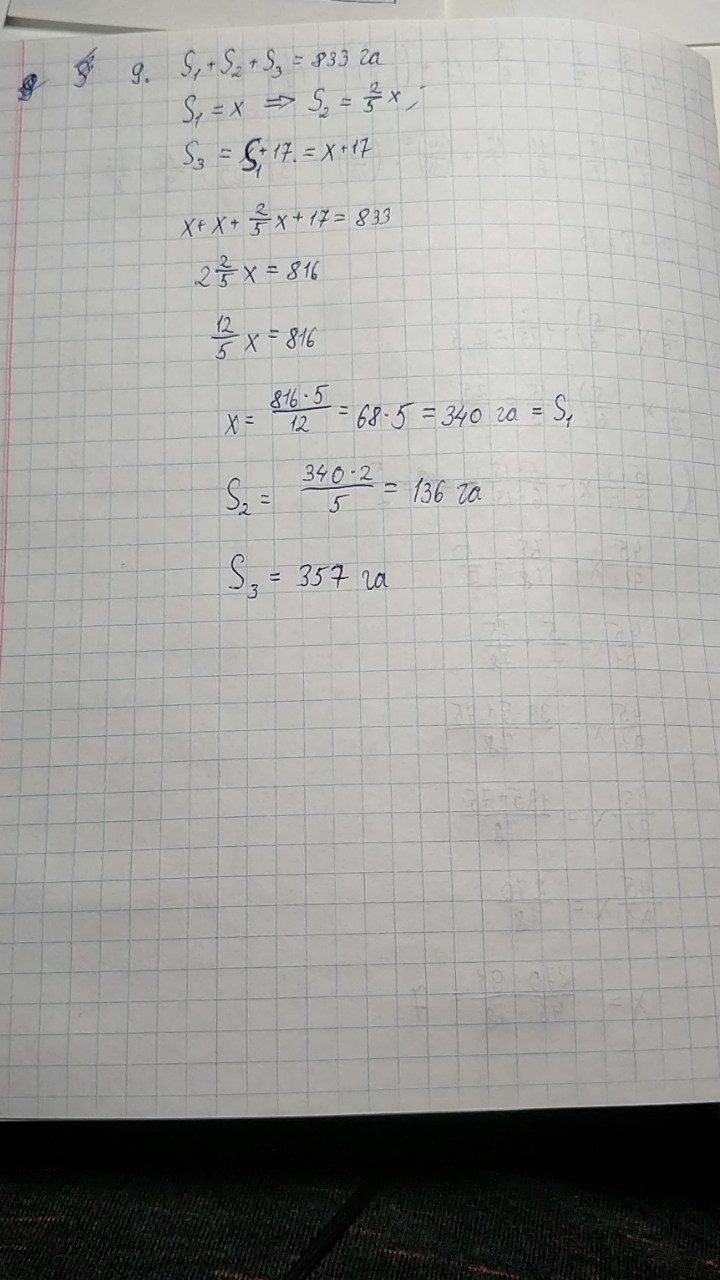 9. S₁+S₂+S₃ = 833 га
S₁ = x ⇒ S₂ = 2/5 x;
S₃ = S₁+17. = x+17
x+x+2/5 x+17 = 833
2 2/5 x = 816
12/5 x = 816
x = 816·5/12 = 68·5 = 340 га = S₁
S₂ = 340·2/5 = 136 га
S₃ = 357 га